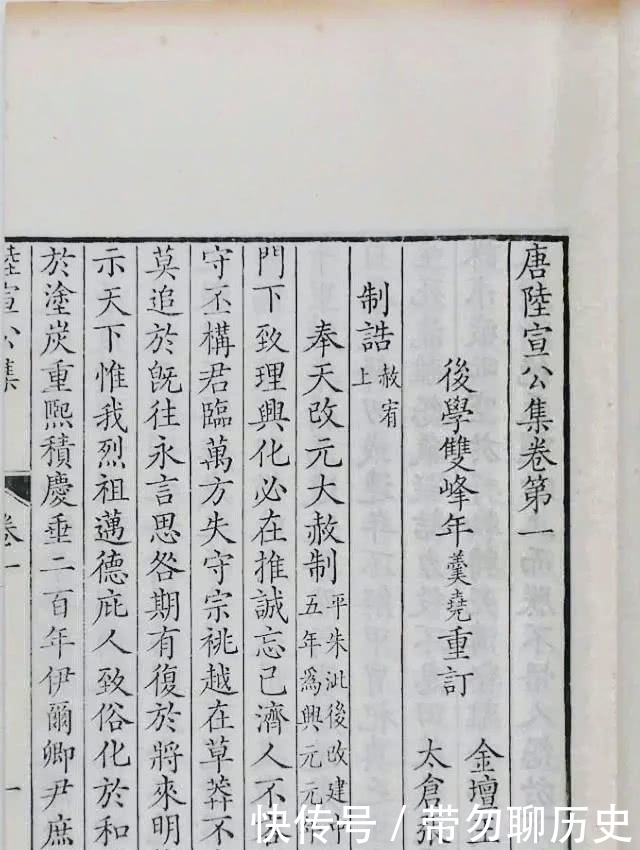 唐陸宣公集卷第一
後學雙峰年羹堯重訂
金壇王
太倉張
制誥
赦宥
上
奉天改元大赦制
平朱泚後改建中
五年爲興元元年
門下致理興化必在推誠忘己濟人不吝
守丕構君臨萬方失守宗祧越在草莽不
莫追於旣往永言思咎期有復於將來明
示天下惟我烈祖邁德庇人致俗化於和
於塗炭重熙積慶垂二百年伊爾卿尹庶
陸宣公集
卷一
一
快传号／带勿聊历史